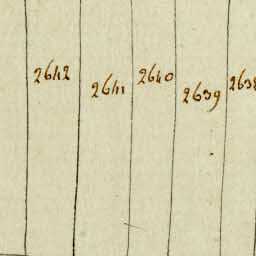 2642 2641 2640 2639 2638